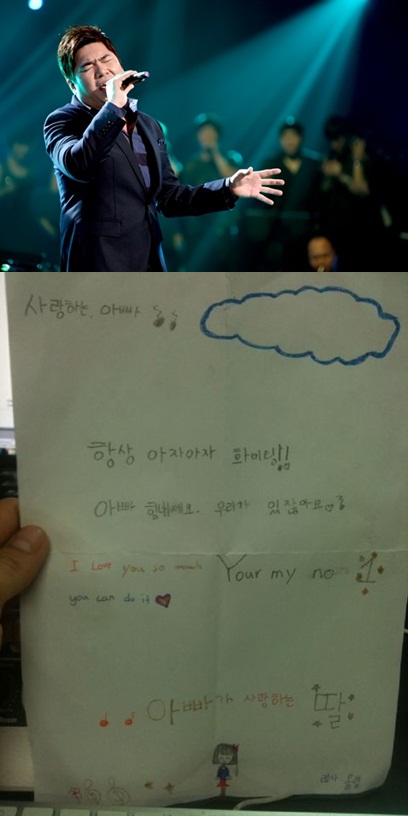 사랑하는, 아빠
항상 아자아자 화이팅!!
아빠 힘내세요. 우리가 있잖아요
I Love you so much
Your my no 1
you can do it
아빠가 사랑하는 딸